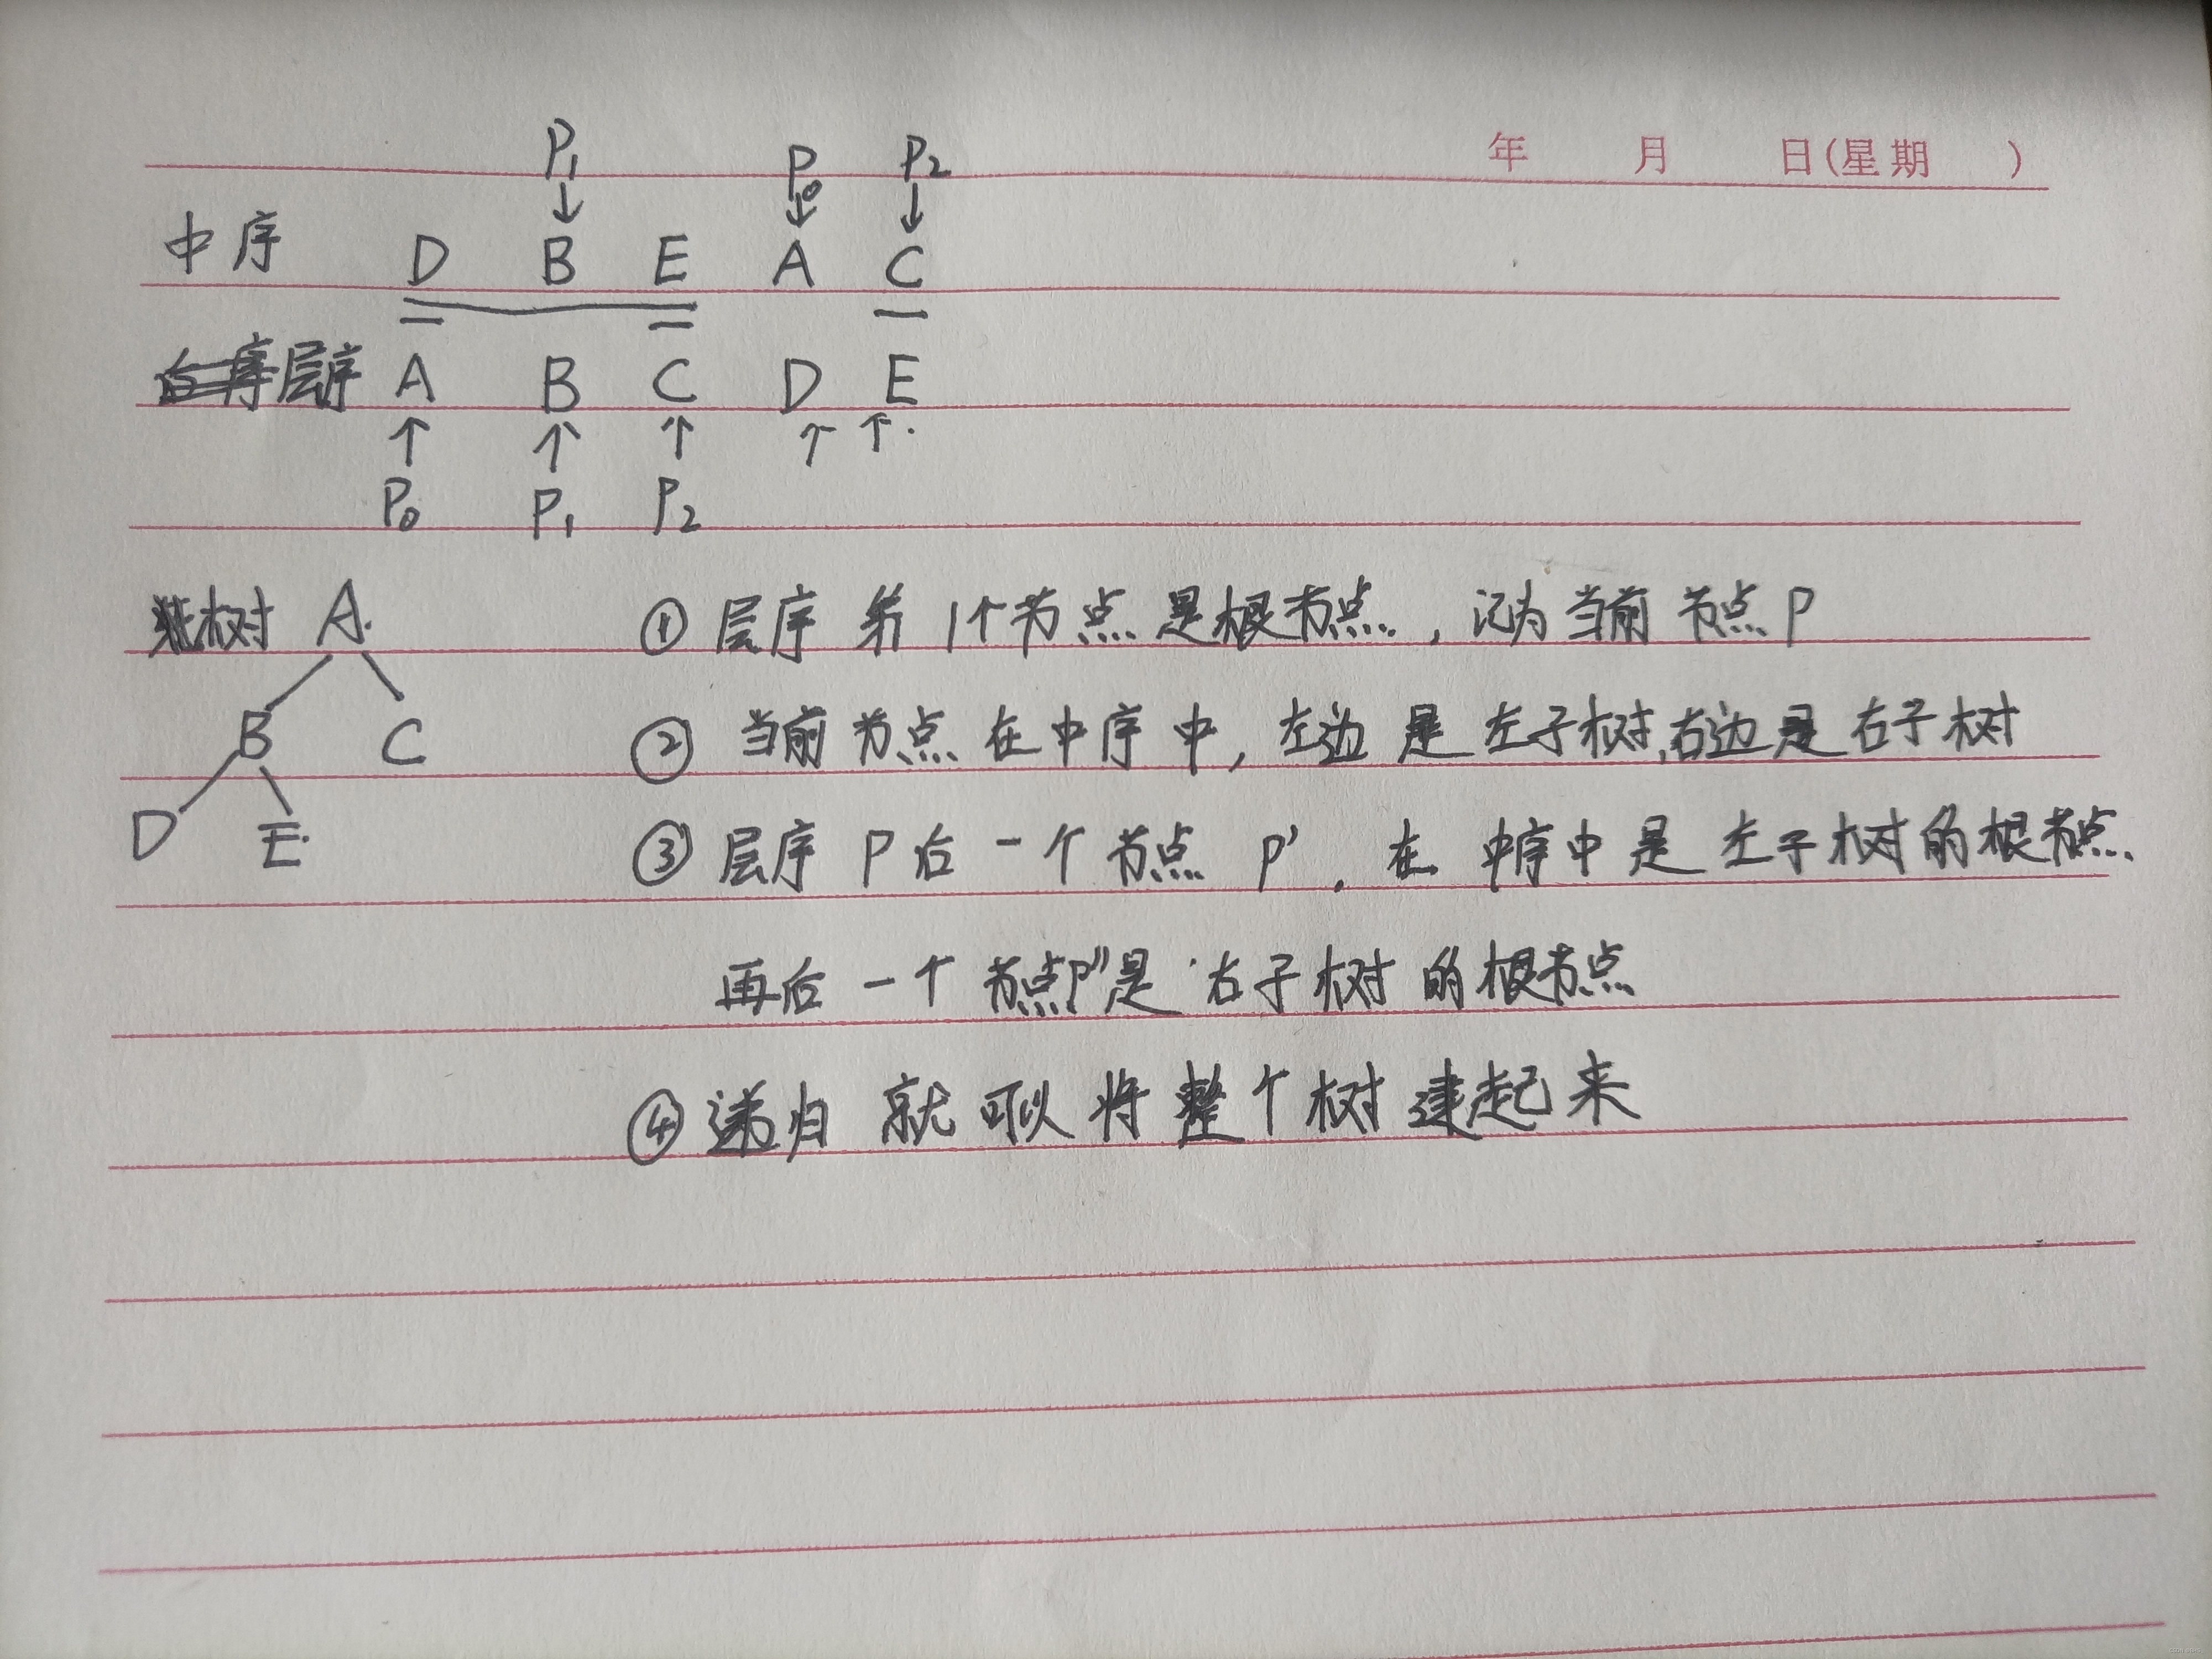 年 月 日(星期 )
P₁ P₀ P₂
中序 D B E A C
层序 A B C D E
P₀ P₁ P₂
树 A.
B C
D E.
① 层序 第1个节点是根节点, 记为当前节点P
② 当前节点在中序中, 左边是左子树,右边是右子树
③ 层序P后一个节点 P', 在中序中是左子树的根节点
再后一个节点P''是右子树的根节点
④ 递归就可以将整个树建起来